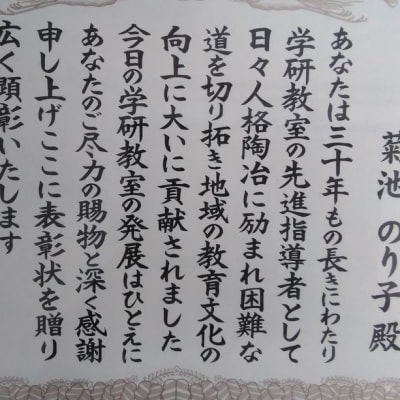 菊池 のり子 殿
あなたは三十年もの長きにわたり
学研教室の先進指導者として
日々人格陶冶に励まれ困難な
道を切り拓き地域の教育文化の
向上に大いに貢献されました
今日の学研教室の発展はひとえに
あなたのご尽力の賜物と深く感謝
申し上げここに表彰状を贈り
広く顕彰いたします